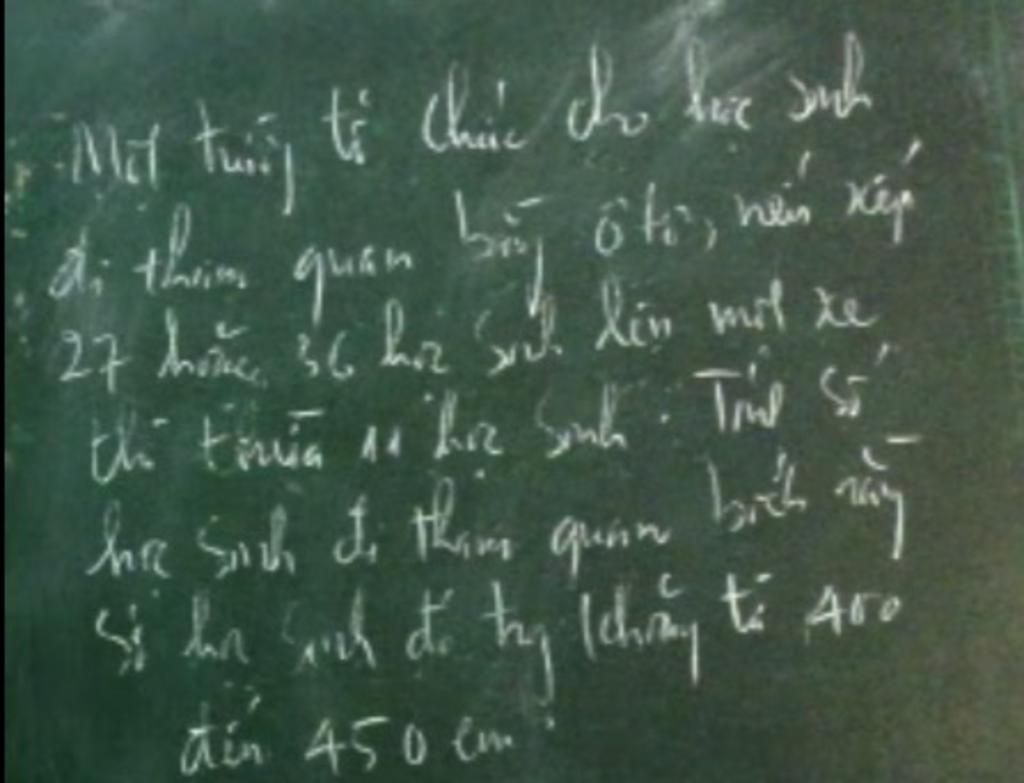 Một trường tổ chức cho học sinh
đi tham quan bằng ô tô, nếu xếp
27 hoặc 36 học sinh lên một xe
thì thừa 11 học sinh. Tính số
học sinh đi tham quan biết rằng
số học sinh đó trg khoảng từ 400
đến 450 em.